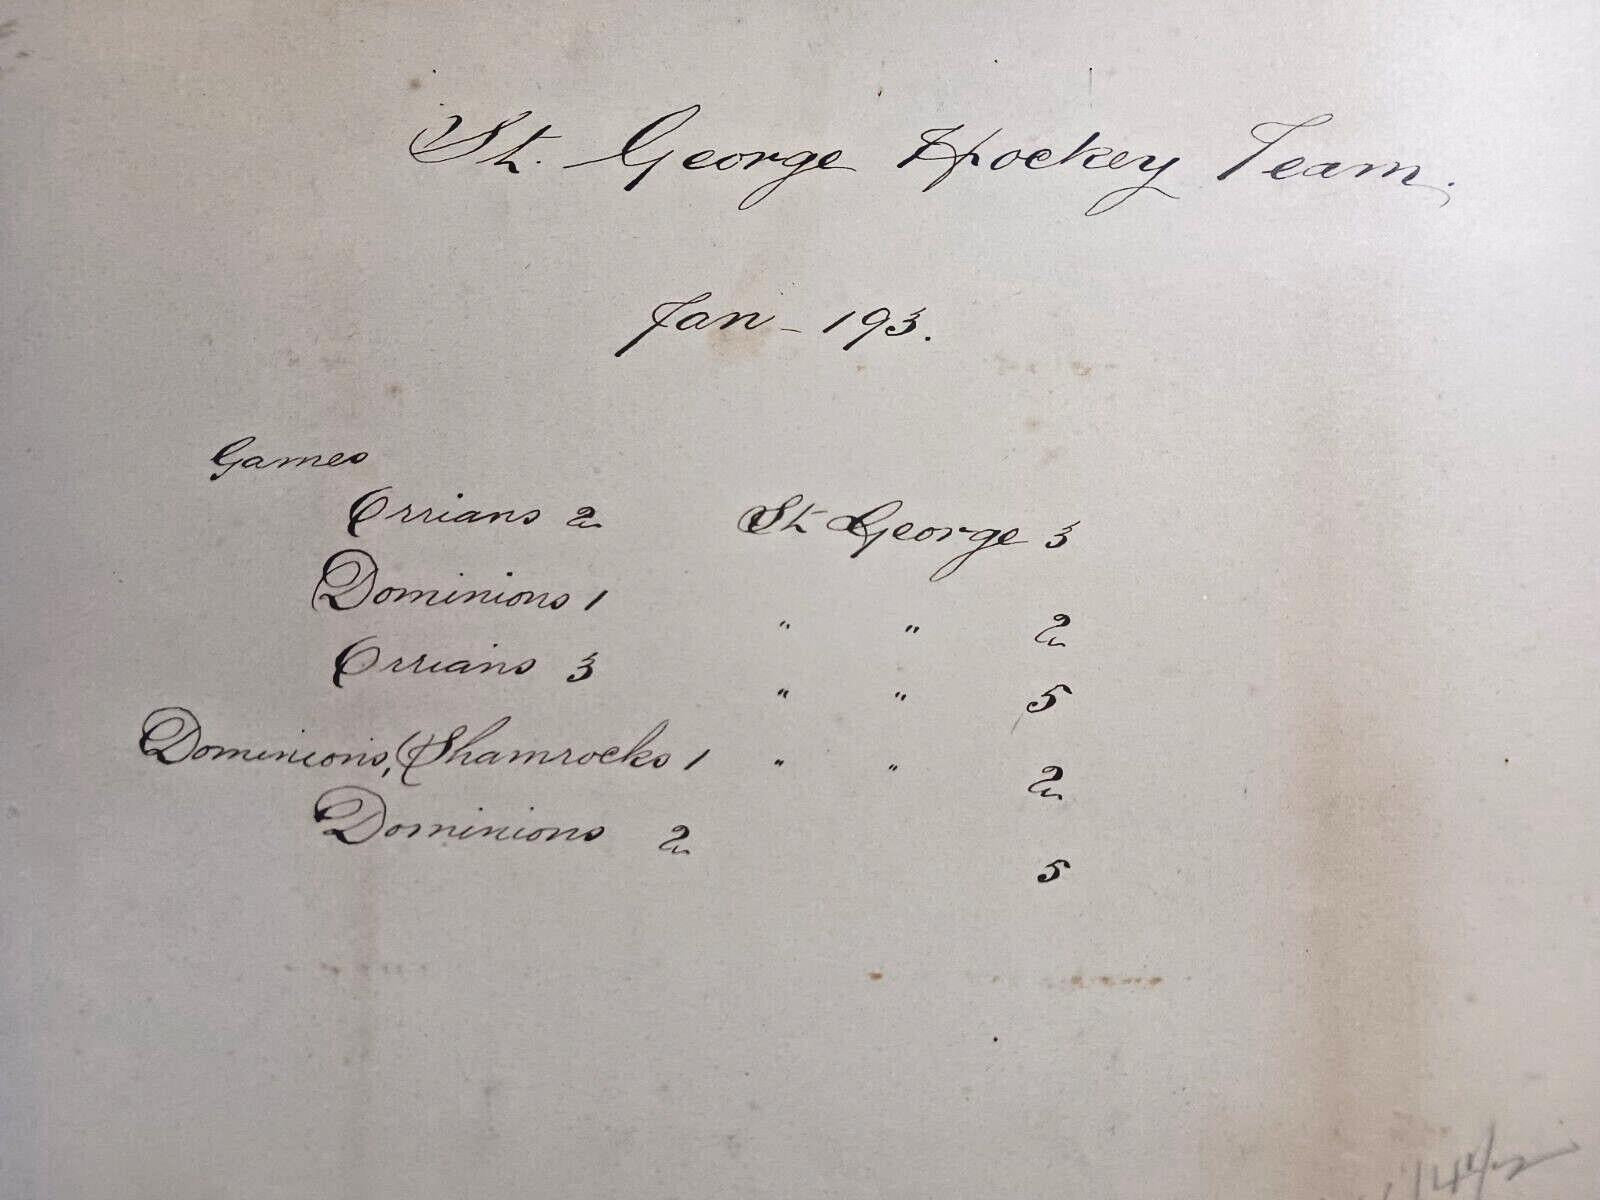 St. George Hockey Team.
Jan - 193.
Games
Orrians 2 St George 3
Dominions 1 " " 2
Orrians 3 " " 5
Dominions, (Shamrocks 1 " " 2
Dominions 2 5